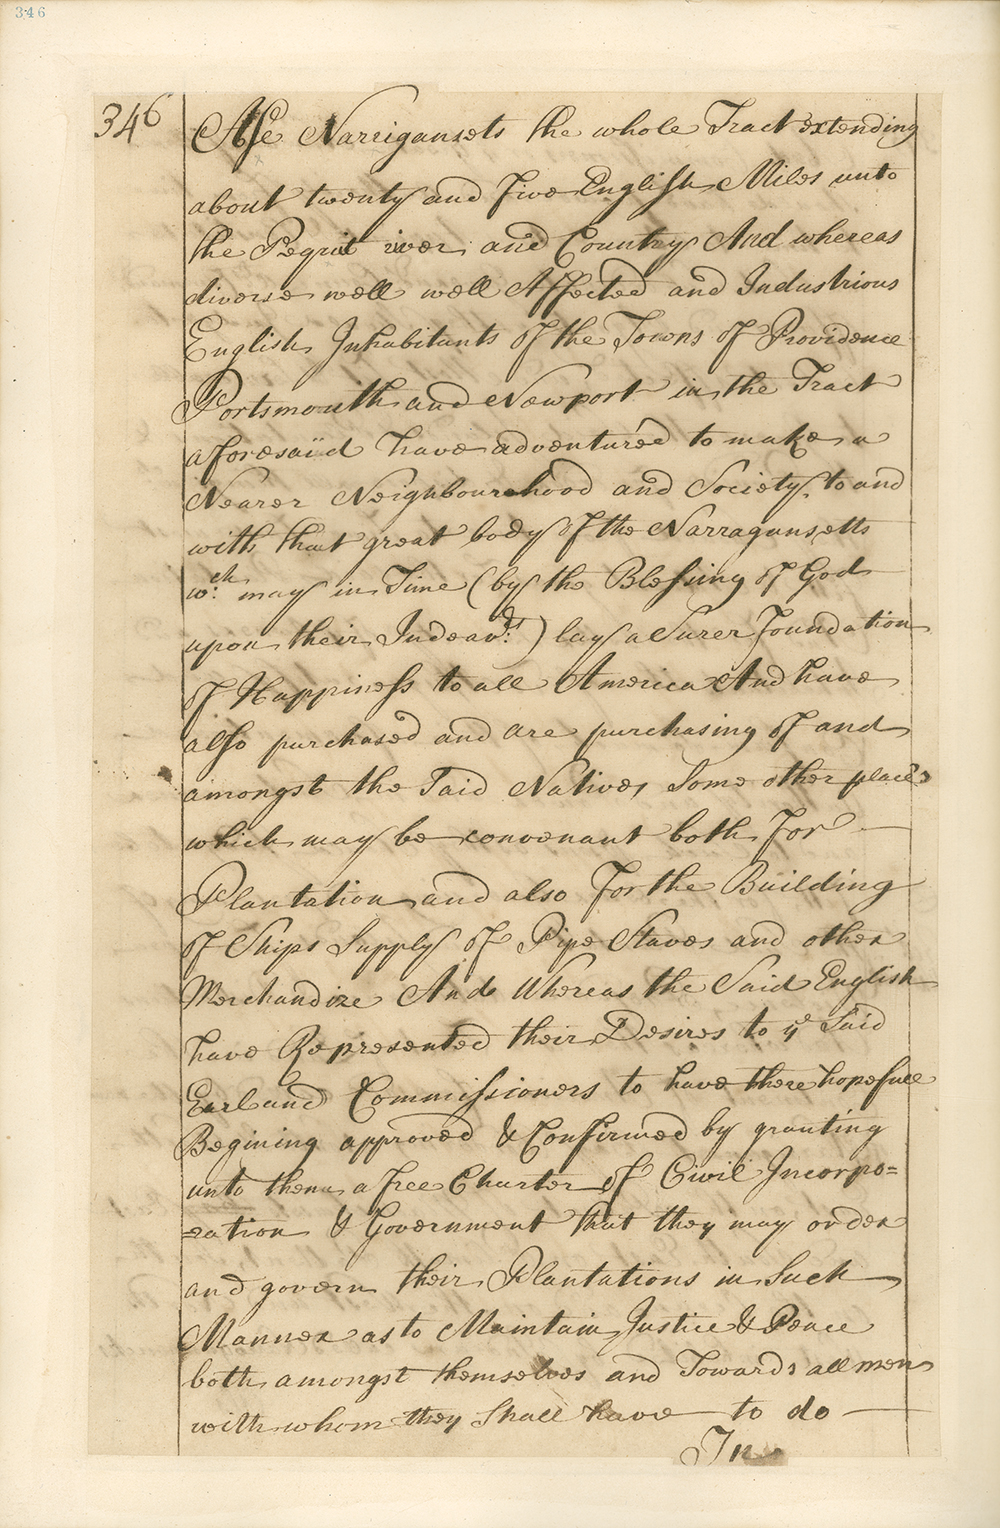 346
346
Afsd Narrigansets the whole Tract extending
about twenty and five English Miles unto
the Pequit river and Country And whereas
diverse well well Affected and Industrious
English Inhabitants of the Towns of Providence
Portsmouth and Newport in the Tract
aforesaid have adventured to make a
Nearer Neighbourhood and Society to and
with that great body of the Narragansetts
wch. may in Time (by the Blessing of God
upon their Indeavrs.) lay a Surer foundation
of Happiness to all America And have
also purchased and are purchasing of and
amongst the Said Natives Some other places
which may be convenant both for
Plantation and also for the Building
of Ships Supply of Pipe Staves and other
Merchandize And Whereas the Said English
have Represented their Desires to ye Said
Earl and Commissioners to have there hopefull
Begining approved & Confirmed by granting
unto them a free Charter of Civil Incorpo=
=ration & Government that they may order
and govern their Plantations in Such
Manner as to Maintain Justice & Peace
both amongst themselves and Towards all men
with whom they Shall have to do
In